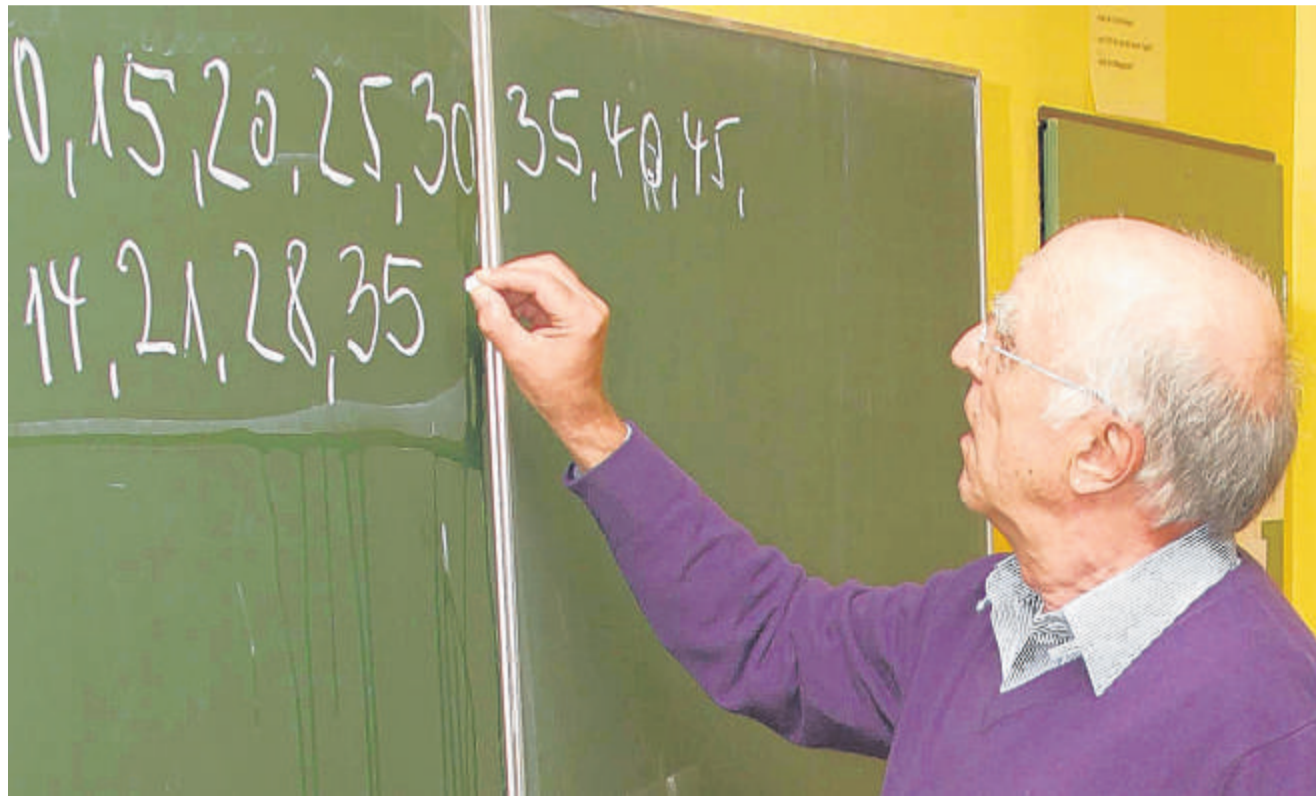 0, 15, 20, 25, 30, 35, 40, 45,
14, 21, 28, 35